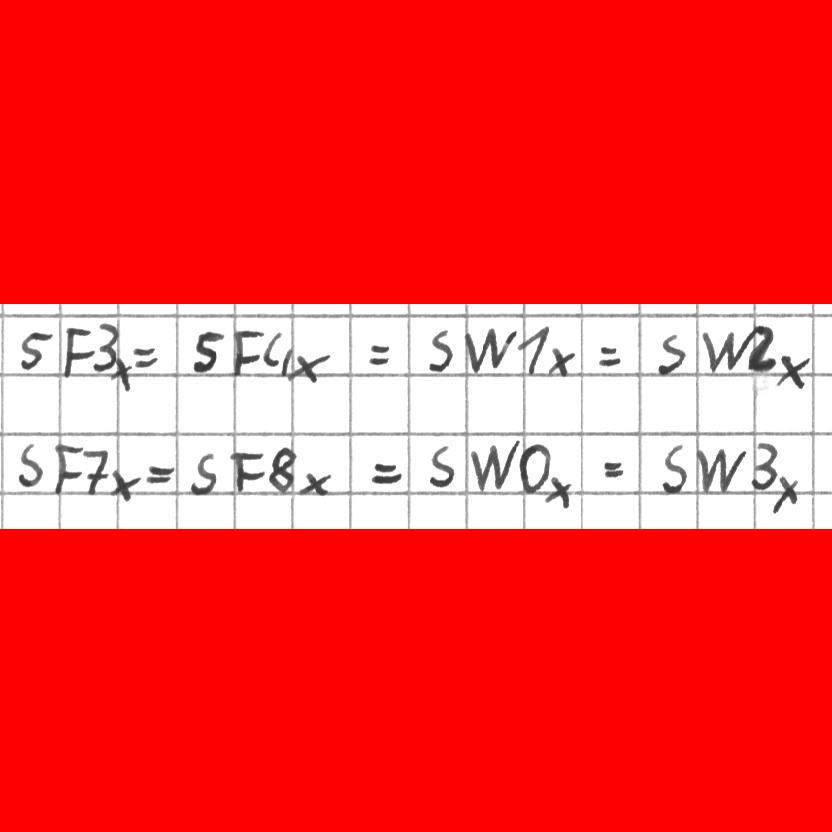 SF3x = SF4x = SW1x = SW2x
SF7x = SF8x = SW0x = SW3x